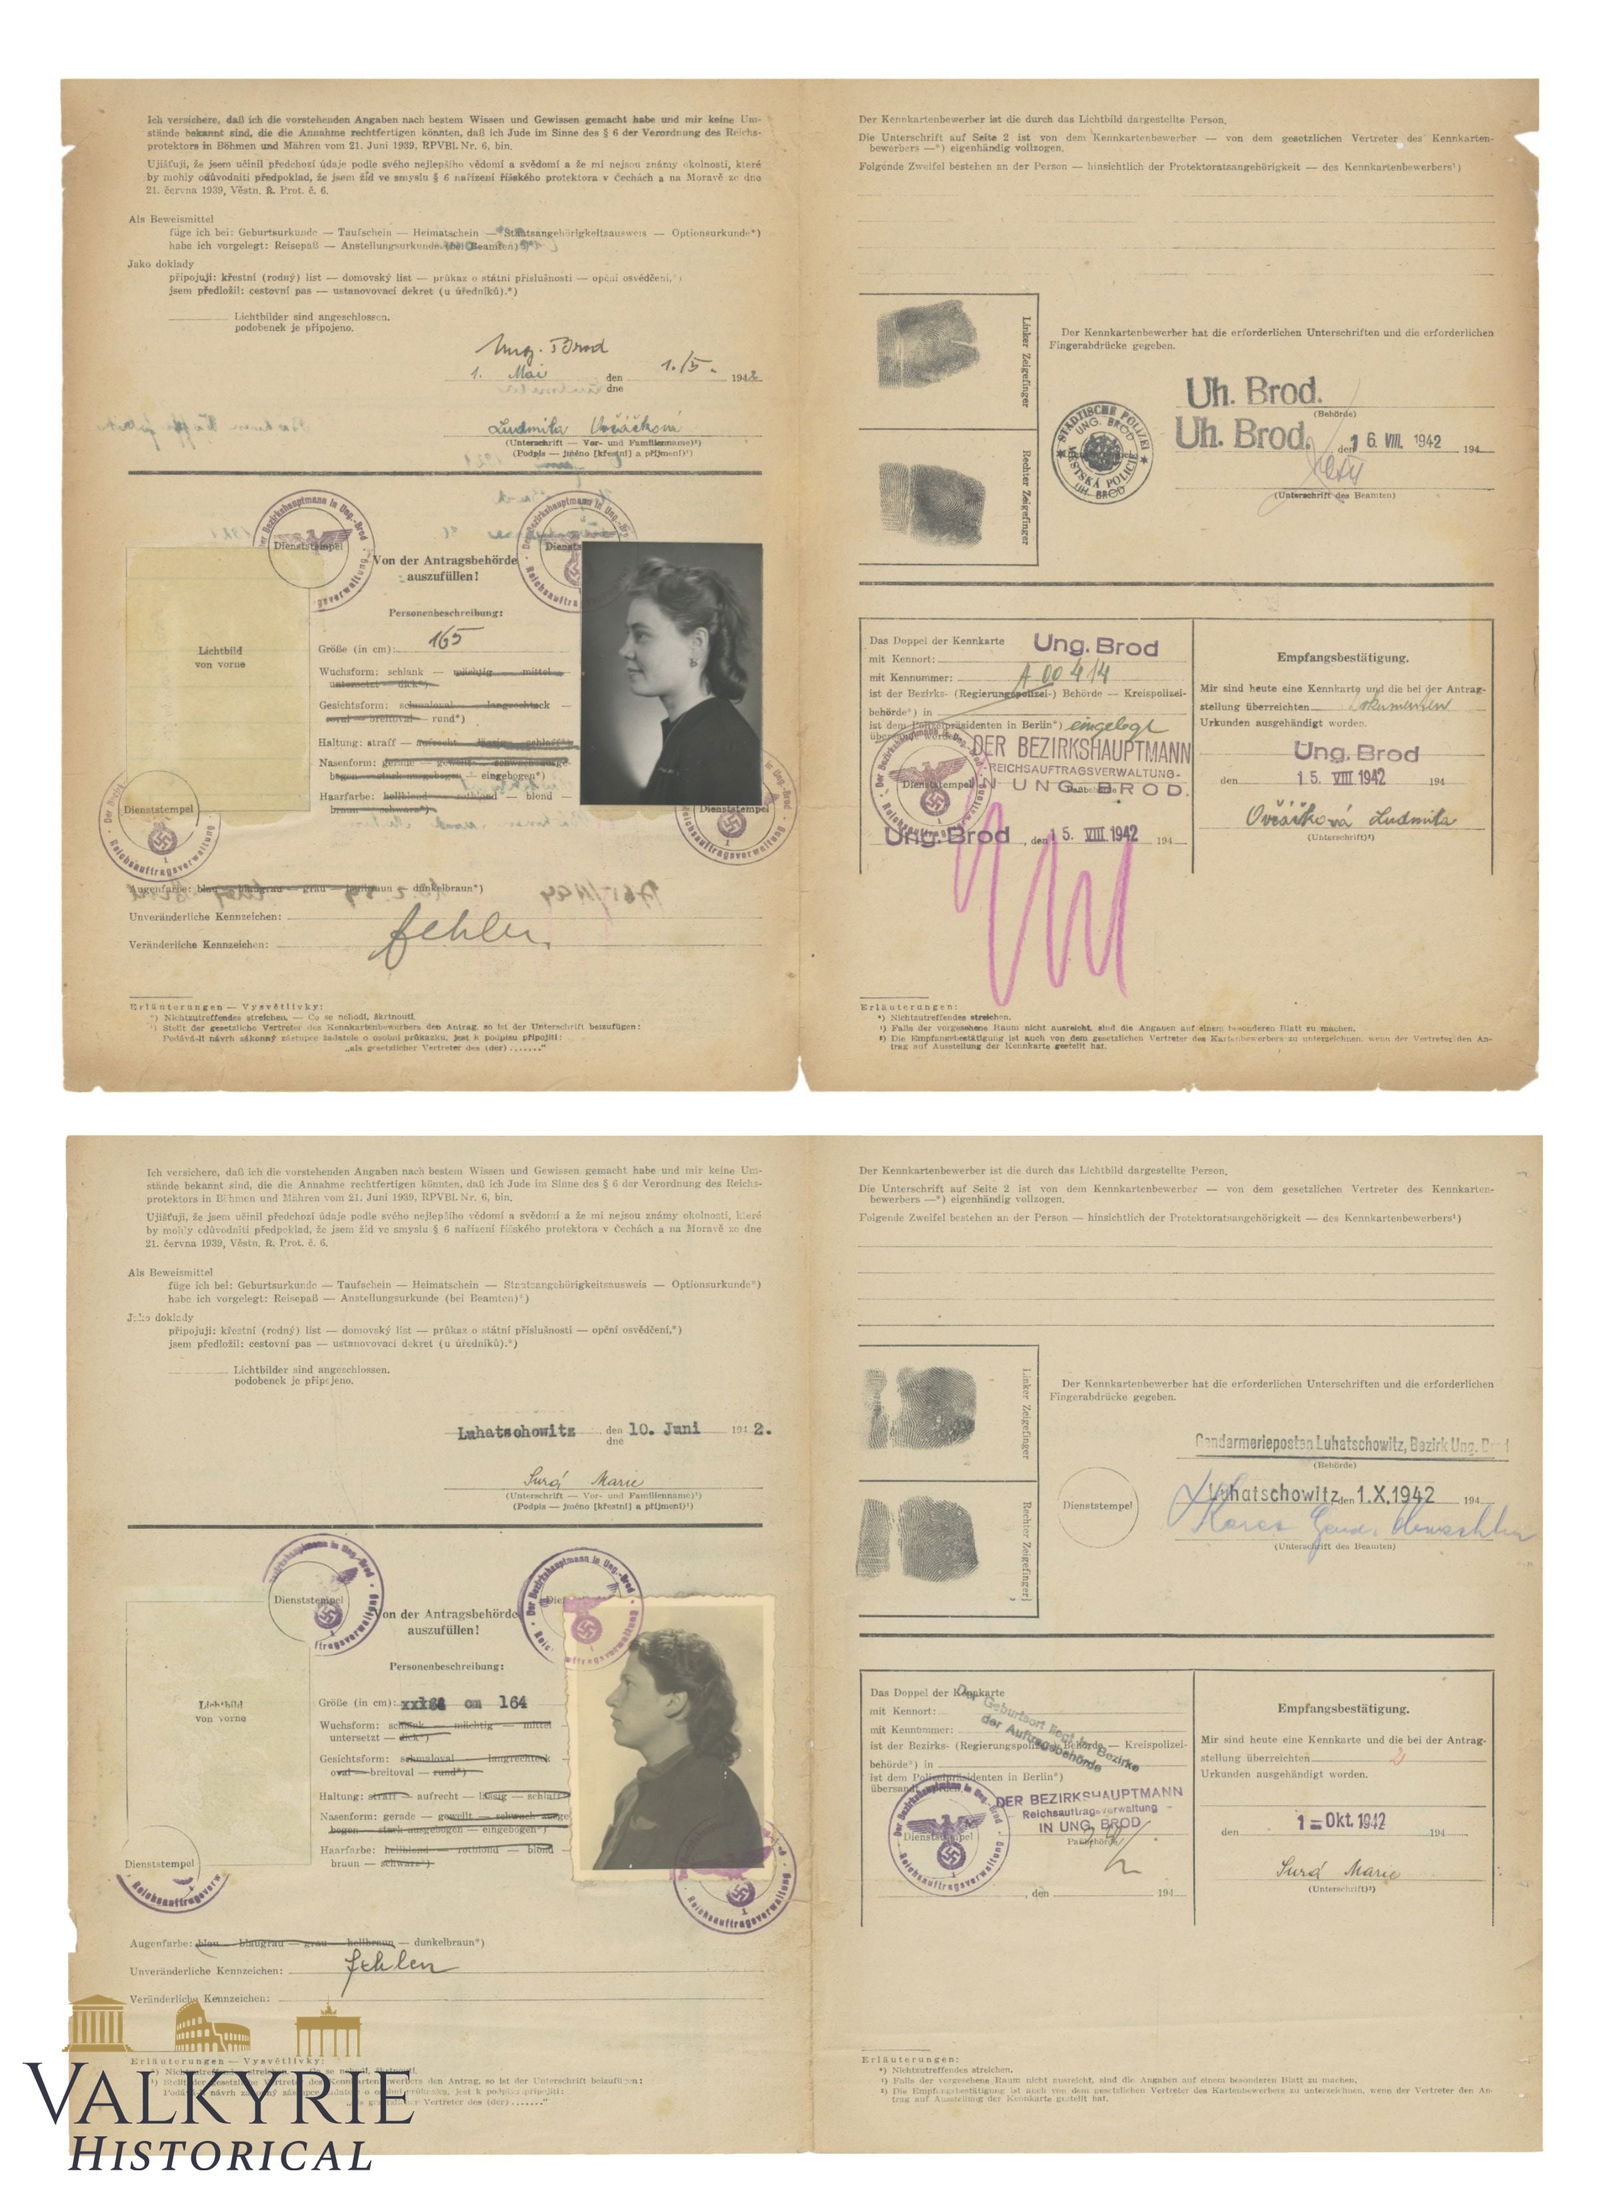 Ich versichere, daß ich die vorstehenden Angaben nach bestem Wissen und Gewissen gemacht habe und mir keine Um-
stände bekannt sind, die die Annahme rechtfertigen könnten, daß ich Jude im Sinne des § 6 der Verordnung des Reichs-
protektors in Böhmen und Mähren vom 21. Juni 1939, RPVBl. Nr. 6, bin.
Ujišťuji, že jsem učinil předchozí údaje podle svého nejlepšího vědomí a svědomí a že mi nejsou známy okolnosti, které
by mohly odůvodniti předpoklad, že jsem žid ve smyslu § 6 nařízení říšského protektora v Čechách a na Moravě ze dne
21. června 1939, Věstn. Ř. Prot. č. 6.
Als Beweismittel
füge ich bei: Geburtsurkunde — Taufschein — Heimatschein — Staatsangehörigkeitsausweis — Optionsurkunde*)
habe ich vorgelegt: Reisepaß — Anstellungsurkunde (bei Beamten)*)
Jako doklady
připojuji: křestní (rodný) list — domovský list — průkaz o státní příslušnosti — opční osvědčení,*)
jsem předložil: cestovní pas — ustanovovací dekret (u úředníků).*)
Lichtbilder sind angeschlossen.
podobenek je připojeno.
Ung. Brod
1. Mai den 1./5. 1942
dne
Ludmila Ovčáčková
(Unterschrift — Vor- und Familienname)¹)
(Podpis — jméno [křestní] a příjmení)¹)
Der Bezirkshauptmann in Ung.-Brod
Dienststempel
Von der Antragsbehörde
auszufüllen!
Lichtbild
von vorne
Personenbeschreibung:
Größe (in cm): 165
Wuchsform: schlank — mächtig — mittel —
untersetzt — dick*)
Gesichtsform: schmaloval — langrechteck —
oval — breitoval — rund*)
Haltung: straff — aufrecht — lässig — schlaff*)
Nasenform: gerade — gewellt — schwachausge-
bogen — stark ausgebogen — eingebogen*)
Haarfarbe: hellblond — rotblond — blond —
braun — schwarz*)
Dienststempel
Dienststempel
Reichsauftragsverwaltung
Augenfarbe: blau — blaugrau — grau — hellbraun — dunkelbraun*)
Unveränderliche Kennzeichen:
fehlen
Veränderliche Kennzeichen:
Erläuterungen — Vysvětlivky:
*) Nichtzutreffendes streichen. — Co se nehodí, škrtnouti.
¹) Stellt der gesetzliche Vertreter des Kennkartenbewerbers den Antrag, so ist der Unterschrift beizufügen:
Podává-li návrh zákonný zástupce žadatele o osobní průkazku, jest k podpisu připojiti:
„als gesetzlicher Vertreter des (der) ......."
Der Kennkartenbewerber ist die durch das Lichtbild dargestellte Person.
Die Unterschrift auf Seite 2 ist von dem Kennkartenbewerber — von dem gesetzlichen Vertreter des Kennkarten-
bewerbers —*) eigenhändig vollzogen.
Folgende Zweifel bestehen an der Person — hinsichtlich der Protektoratsangehörigkeit — des Kennkartenbewerbers¹)
Linker Zeigefinger
Rechter Zeigefinger
Der Kennkartenbewerber hat die erforderlichen Unterschriften und die erforderlichen
Fingerabdrücke gegeben.
STÄDTISCHE POLIZEI
UNG. BROD
MĚSTSKÁ POLICIE
UH. BROD
Uh. Brod.
(Behörde)
Uh. Brod. den 1 6. VIII. 1942 194
(Unterschrift des Beamten)
Das Doppel der Kennkarte
mit Kennort: Ung. Brod
mit Kennummer: A 00414
ist der Bezirks- (Regierungspolizei-) Behörde — Kreispolizei-
behörde*) in
ist dem Polizeipräsidenten in Berlin*) eingelegt
übersandt worden.
DER BEZIRKSHAUPTMANN
-REICHSAUFTRAGSVERWALTUNG-
IN UNG. BROD.
Dienststempel
Ung. Brod, den 1 5. VIII 1942 194
Empfangsbestätigung.
Mir sind heute eine Kennkarte und die bei der Antrag-
stellung überreichten Dokumenten
Urkunden ausgehändigt worden.
Ung. Brod
den 1 5. VIII 1942 194
Ovčáčková Ludmila
(Unterschrift)²)
Erläuterungen:
*) Nichtzutreffendes streichen.
¹) Falls der vorgesehene Raum nicht ausreicht, sind die Angaben auf einem besonderen Blatt zu machen.
²) Die Empfangsbestätigung ist auch von dem gesetzlichen Vertreter des Kartenbewerbers zu unterzeichnen, wenn der Vertreter den An-
trag auf Ausstellung der Kennkarte gestellt hat.
Ich versichere, daß ich die vorstehenden Angaben nach bestem Wissen und Gewissen gemacht habe und mir keine Um-
stände bekannt sind, die die Annahme rechtfertigen könnten, daß ich Jude im Sinne des § 6 der Verordnung des Reichs-
protektors in Böhmen und Mähren vom 21. Juni 1939, RPVBl. Nr. 6, bin.
Ujišťuji, že jsem učinil předchozí údaje podle svého nejlepšího vědomí a svědomí a že mi nejsou známy okolnosti, které
by mohly odůvodniti předpoklad, že jsem žid ve smyslu § 6 nařízení říšského protektora v Čechách a na Moravě ze dne
21. června 1939, Věstn. Ř. Prot. č. 6.
Als Beweismittel
füge ich bei: Geburtsurkunde — Taufschein — Heimatschein — Staatsangehörigkeitsausweis — Optionsurkunde*)
habe ich vorgelegt: Reisepaß — Anstellungsurkunde (bei Beamten)*)
Jako doklady
připojuji: křestní (rodný) list — domovský list — průkaz o státní příslušnosti — opční osvědčení,*)
jsem předložil: cestovní pas — ustanovovací dekret (u úředníků).*)
Lichtbilder sind angeschlossen.
podobenek je připojeno.
Luhatschowitz den 10. Juni 1942.
dne
Surá Marie
(Unterschrift — Vor- und Familienname)¹)
(Podpis — jméno [křestní] a příjmení)¹)
Der Bezirkshauptmann in Ung.-Brod
Dienststempel
Von der Antragsbehörde
auszufüllen!
Lichtbild
von vorne
Personenbeschreibung:
Größe (in cm): cm 164
Wuchsform: schlank — mächtig — mittel
untersetzt — dick*)
Gesichtsform: schmaloval — langrechteck —
oval — breitoval — rund*)
Haltung: straff — aufrecht — lässig — schlaff*)
Nasenform: gerade — gewellt — schwach ausge-
bogen — stark ausgebogen — eingebogen*)
Haarfarbe: hellblond — rotblond — blond —
braun — schwarz*)
Dienststempel
Reichsauftragsverwaltung
Augenfarbe: blau — blaugrau — grau — hellbraun — dunkelbraun*)
Unveränderliche Kennzeichen: fehlen
Veränderliche Kennzeichen:
Erläuterungen — Vysvětlivky:
*) Nichtzutreffendes streichen. — Co se nehodí, škrtnouti.
¹) Stellt der gesetzliche Vertreter des Kennkartenbewerbers den Antrag, so ist der Unterschrift beizufügen:
Podává-li návrh zákonný zástupce žadatele o osobní průkazku, jest k podpisu připojiti:
„als gesetzlicher Vertreter des (der) ......."
Der Kennkartenbewerber ist die durch das Lichtbild dargestellte Person.
Die Unterschrift auf Seite 2 ist von dem Kennkartenbewerber — von dem gesetzlichen Vertreter des Kennkarten-
bewerbers —*) eigenhändig vollzogen.
Folgende Zweifel bestehen an der Person — hinsichtlich der Protektoratsangehörigkeit — des Kennkartenbewerbers¹)
Linker Zeigefinger
Rechter Zeigefinger
Der Kennkartenbewerber hat die erforderlichen Unterschriften und die erforderlichen
Fingerabdrücke gegeben.
Gendarmerieposten Luhatschowitz, Bezirk Ung. Brod
(Behörde)
Dienststempel
Luhatschowitz, den 1. X. 1942 194
(Unterschrift des Beamten)
Das Doppel der Kennkarte
mit Kennort:
mit Kennummer:
ist der Bezirks- (Regierungspolizei-) Behörde — Kreispolizei-
behörde*) in
ist dem Polizeipräsidenten in Berlin*)
übersandt worden.
Der Geburtsort liegt im Bezirke
der Auftragsbehörde
DER BEZIRKSHAUPTMANN
Reichsauftragsverwaltung
IN UNG. BROD
Dienststempel
, den 194
Empfangsbestätigung.
Mir sind heute eine Kennkarte und die bei der Antrag-
stellung überreichten 2
Urkunden ausgehändigt worden.
den 1 = Okt. 1942 194
Surá Marie
(Unterschrift)²)
Erläuterungen:
*) Nichtzutreffendes streichen.
¹) Falls der vorgesehene Raum nicht ausreicht, sind die Angaben auf einem besonderen Blatt zu machen.
²) Die Empfangsbestätigung ist auch von dem gesetzlichen Vertreter des Kartenbewerbers zu unterzeichnen, wenn der Vertreter den An-
trag auf Ausstellung der Kennkarte gestellt hat.
VALKYRIE
HISTORICAL